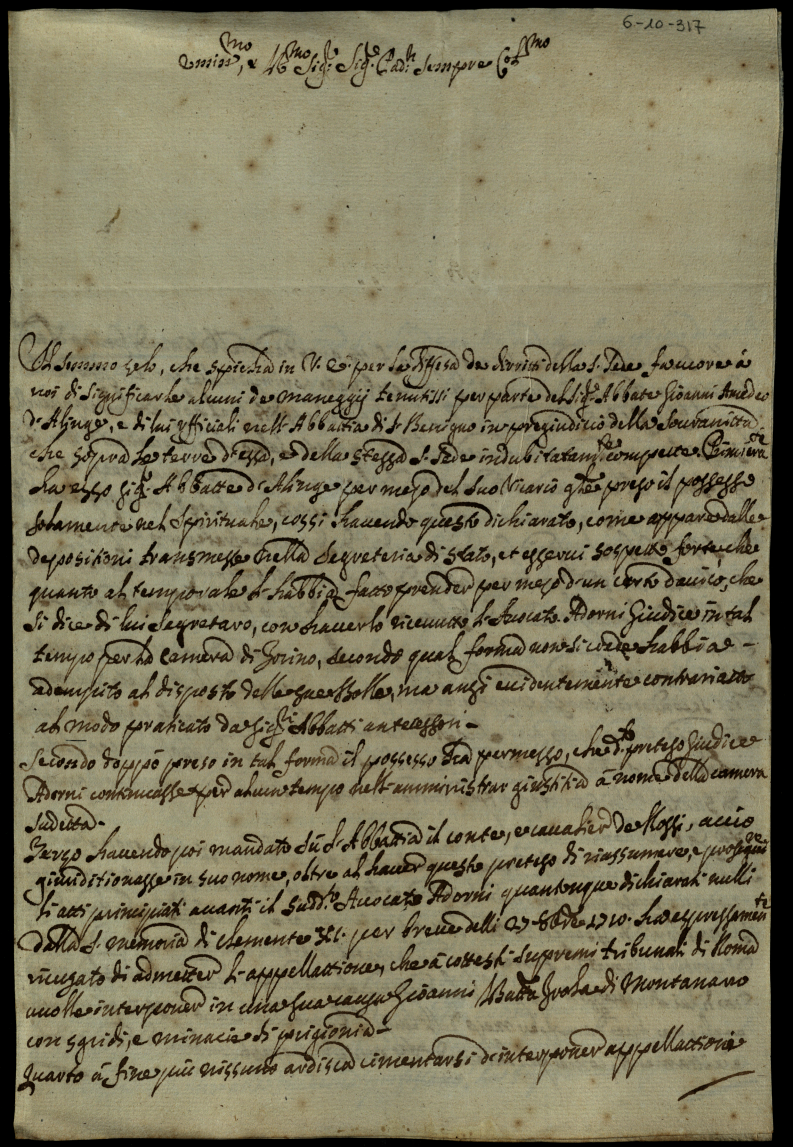 6-10-317
Emin.mo, e R.mo Sig.r Sig.r Pad.n Sempre Col.mo
Il sommo zelo, che spicha in V. E. per la diffesa de dirritti della S. Sede fa cuore à
noi di significarle alcuni de maneggij tenutissi per parte del Sig.r Abbate Gioanni Amedeo
d'Alinge, e di lui officiali nell'Abbattia di S. Benigno in pregiudicio della Souranittà
che sopra le terre d'essa, e della stessa S. Sede indubitatam.te compette. Primiera.te
ha esso Sig.r Abbatte d'Alinge per mezo del suo Vicario g.le preso il possesso
solamente nel Spirituale, cossì havendo questo dichiarato, come appare dalle
depositioni transmesse nella Segreteria di Stato, et esservi sospetto forte, che
quanto al temporale l'habbia fatto prender per mezo d'un certo dauico, che
si dice di lui Segretaro, con haverlo ricevutto l'Avocato Adorni Giudice in tal
tempo per la Camera di Torino, secondo qual forma non si crede habbia
adempito al disposto delle sue Bolle, ma anzi evidentemente contrariatto
al modo praticato da Sig.ri Abbatti antecessori-
Secondo doppò preso in tal forma il possesso ha permesso, che d.to preteso Giudice
Adorni continuasse per alcun tempo nell'amministrar giustitia à nome della camera
sudetta-
Terzo havendo poi mandato sù l'Abbattia il conte, e cavalier De Rossi, acciò
giuridittionasse in suo nome, oltre al haver questo preteso di riassumere, e proseguir
li atti principiati avanti il sudd.to Avocato Adorni quantonque dichiarati nulli
dalla S. memoria di Clemente XI. per breve delli 27 8bre 1710. ha espressamen.te
ricusato di admetter l'appellattione, che à cottesti supremi tribunali di Roma
volle interponer in una sua causa Gioanni Batta Frola di Montanaro
con sgridi, e minacie di prigionia-
Quarto à fine più nissuno ardisca cimentarsi d'interponer appellattione